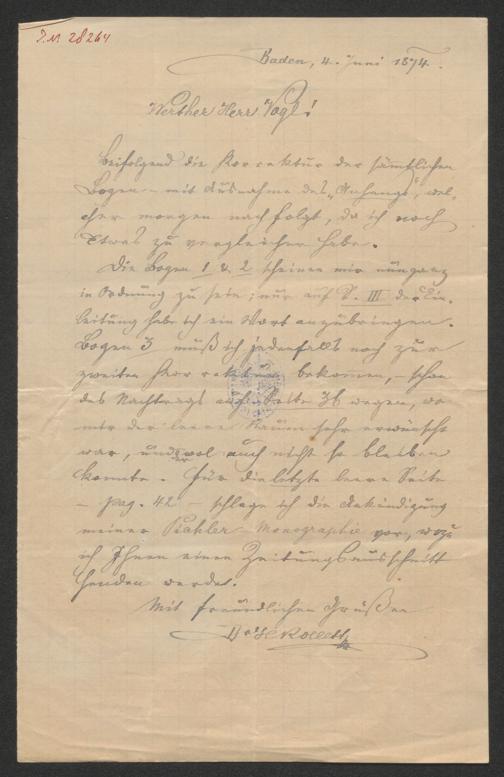 J.N. 28264
Baden, 4. Juni 1874.
Werther Herr Vogl!
Beifolgend die Korrektur der sämtlichen
Bogen – mit Ausnahme des „Anhangs“, wel-
cher morgen nachfolgt, da ich noch
Etwas zu vergleichen habe.
Die Bogen 1 u. 2 scheinen mir nun ganz
in Ordnung zu sein; nur auf S. III der Ein-
leitung habe ich ein Wort anzubringen.
Bogen 3 muß ich jedenfalls noch zur
zweiten Korrektur bekommen, – schon
des Nachtrags auf Seite 36 wegen, wo
mir der leere Raum sehr erwünscht
war, und wol auch nicht so bleiben
konnte. Für die letzte leere Seite
– pag. 42 – schlage ich die Ankündigung
meiner Monographie vor, wozu
ich Ihnen einen Zeitungsausschnitt
senden werde.
Mit freundlichen Grüßen
Dr. H. Rollett